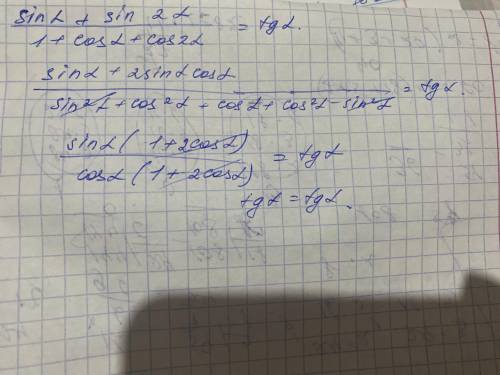 (sin α + sin 2α) / (1 + cos α + cos 2α) = tg α.
(sin α + 2 sin α cos α) / (sin²α + cos²α + cos α + cos²α - sin²α) = tg α.
(sin α (1 + 2cos α)) / (cos α (1 + 2cos α)) = tg α
tg α = tg α.